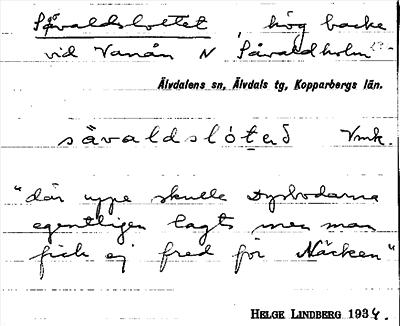 Såvaldslottet, hög backe
vid Vanån N Såvaldholm
Älvdalens sn, Älvdals tg, Kopparbergs län.
såvaldslóteð Vmk.
"där uppe skulle Dysbodarna
egentligen lagts men man
fick ej fred för Näcken"
HELGE LINDBERG 1934.